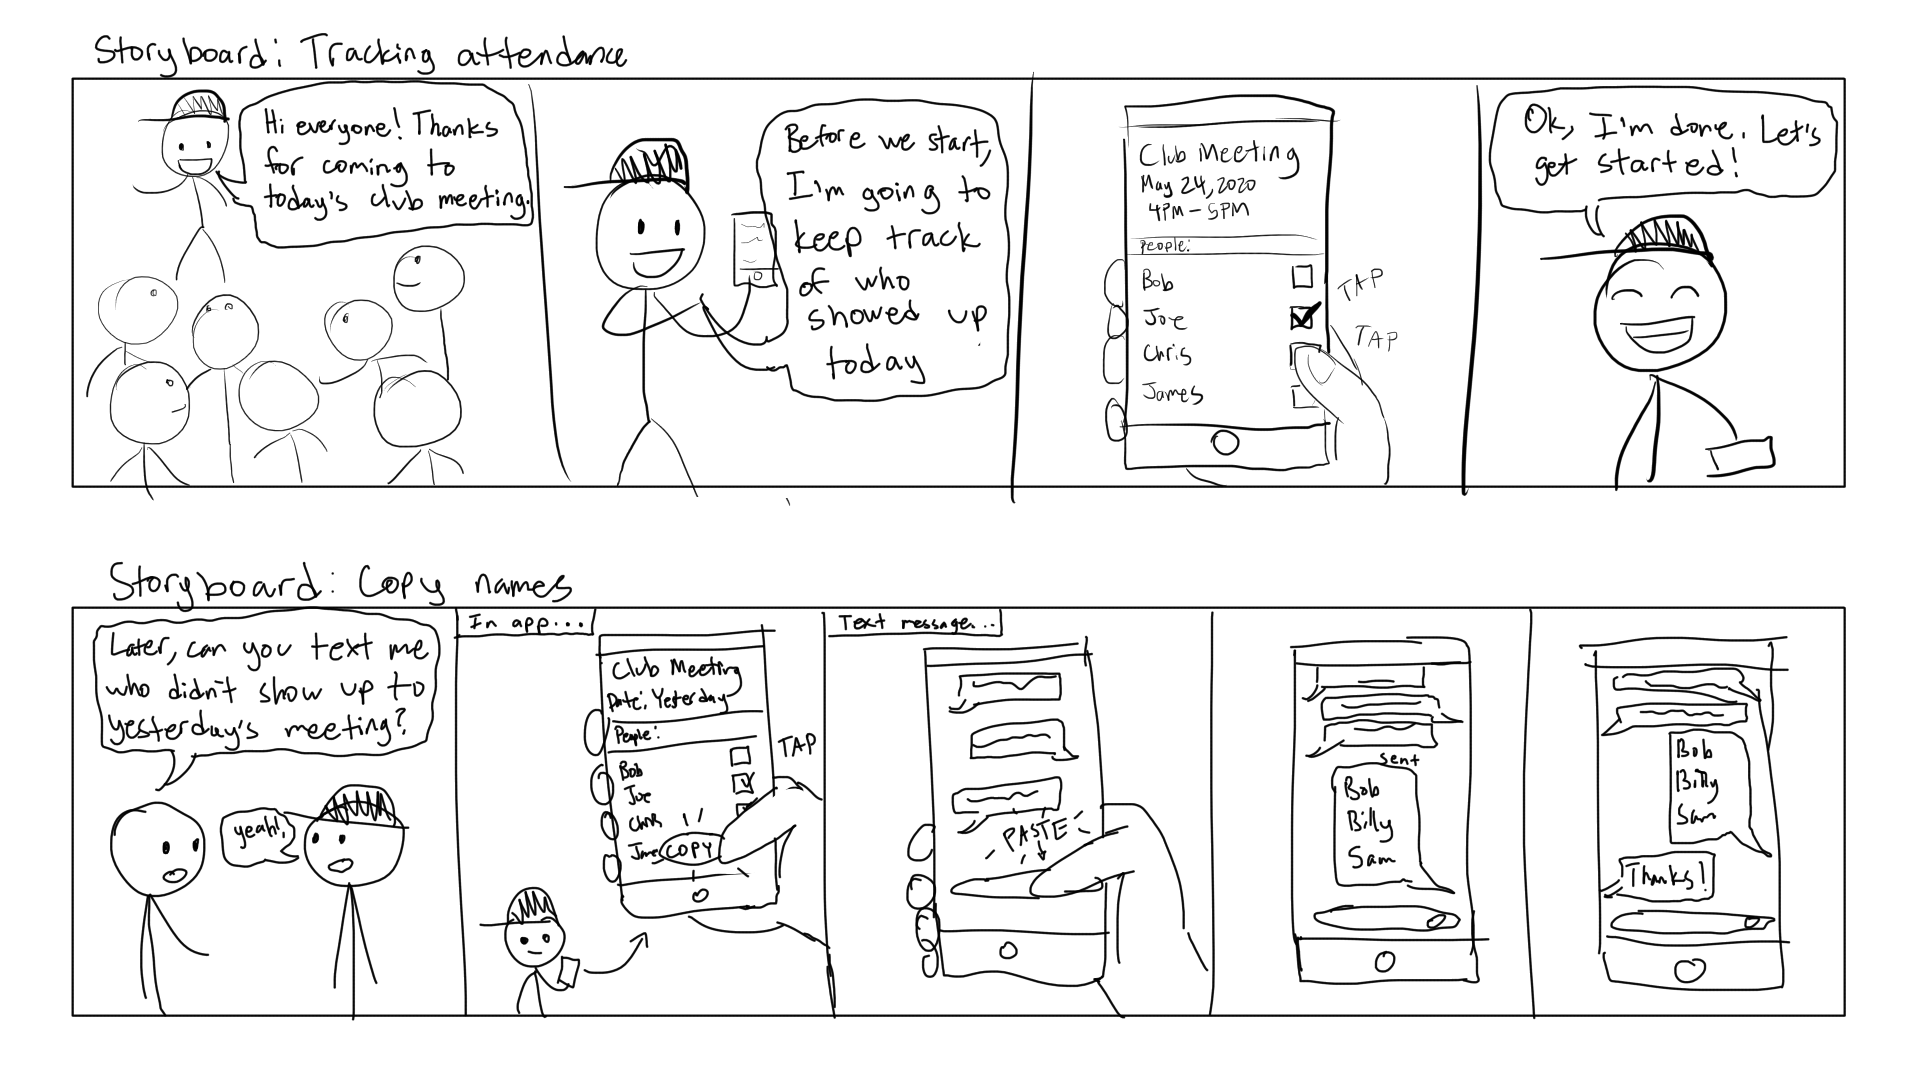 Storyboard: Tracking attendance
Hi everyone! Thanks
for coming to
today's club meeting.
Before we start,
I'm going to
keep track
of who
showed up
today
Club Meeting
May 24, 2020
4PM - 5PM
People:
Bob
Joe
Chris
James
TAP
TAP
Ok, I'm done. Let's
get started!
Storyboard: Copy names
Later, can you text me
who didn't show up to
yesterday's meeting?
yeah!
In app...
Club Meeting
Date: Yesterday
People:
Bob
Joe
Chris
Jame
COPY
TAP
Text message...
PASTE
sent
Bob
Billy
Sam
Bob
Billy
Sam
Thanks!